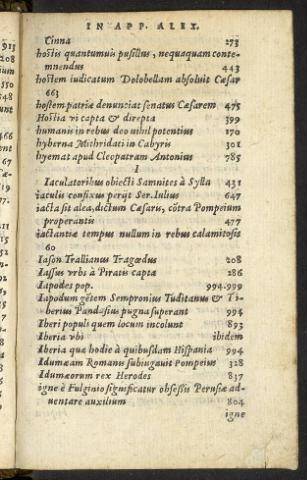 IN APP. ALEX.
Cinna 273
hostis quantumuis pusillus, nequaquam conte-
mnendus 443
hostem iudicatum Dolobellam absoluit Cæsar
663
hostem patriæ denunciat senatus Cæsarem 475
Hostia vi capta & direpta 399
humanis in rebus deo nihil potentius 170
hyberna Mithridati in Cabyris 301
hyemat apud Cleopatram Antonius 785
I
Iaculatoribus obiecti Samnites à Sylla 431
iaculis confixus perijt Ser. Iulius 647
iacta sit alea, dictum Cæsaris, cõtra Pompeium
properantis 477
iactantiæ tempus nullum in rebus calamitosis
60
Iason Trallianus Tragœdus 208
Iassus vrbs à Piratis capta 286
Iapodes pop. 994.999
Iapodum gẽtem Sempronius Tuditanus & Ti-
berius Pandusius pugna superant 994
Iberi populi quem locum incolunt 893
Iberia vbi ibidem
Iberia quæ hodie à quibusdam Hispania 994
Idumæam Romanis subiugauit Pompeius 328
Idumæorum rex Herodes 837
igne è Fulginio significatur obsessis Perusiæ ad-
uentare auxilium 804
igne